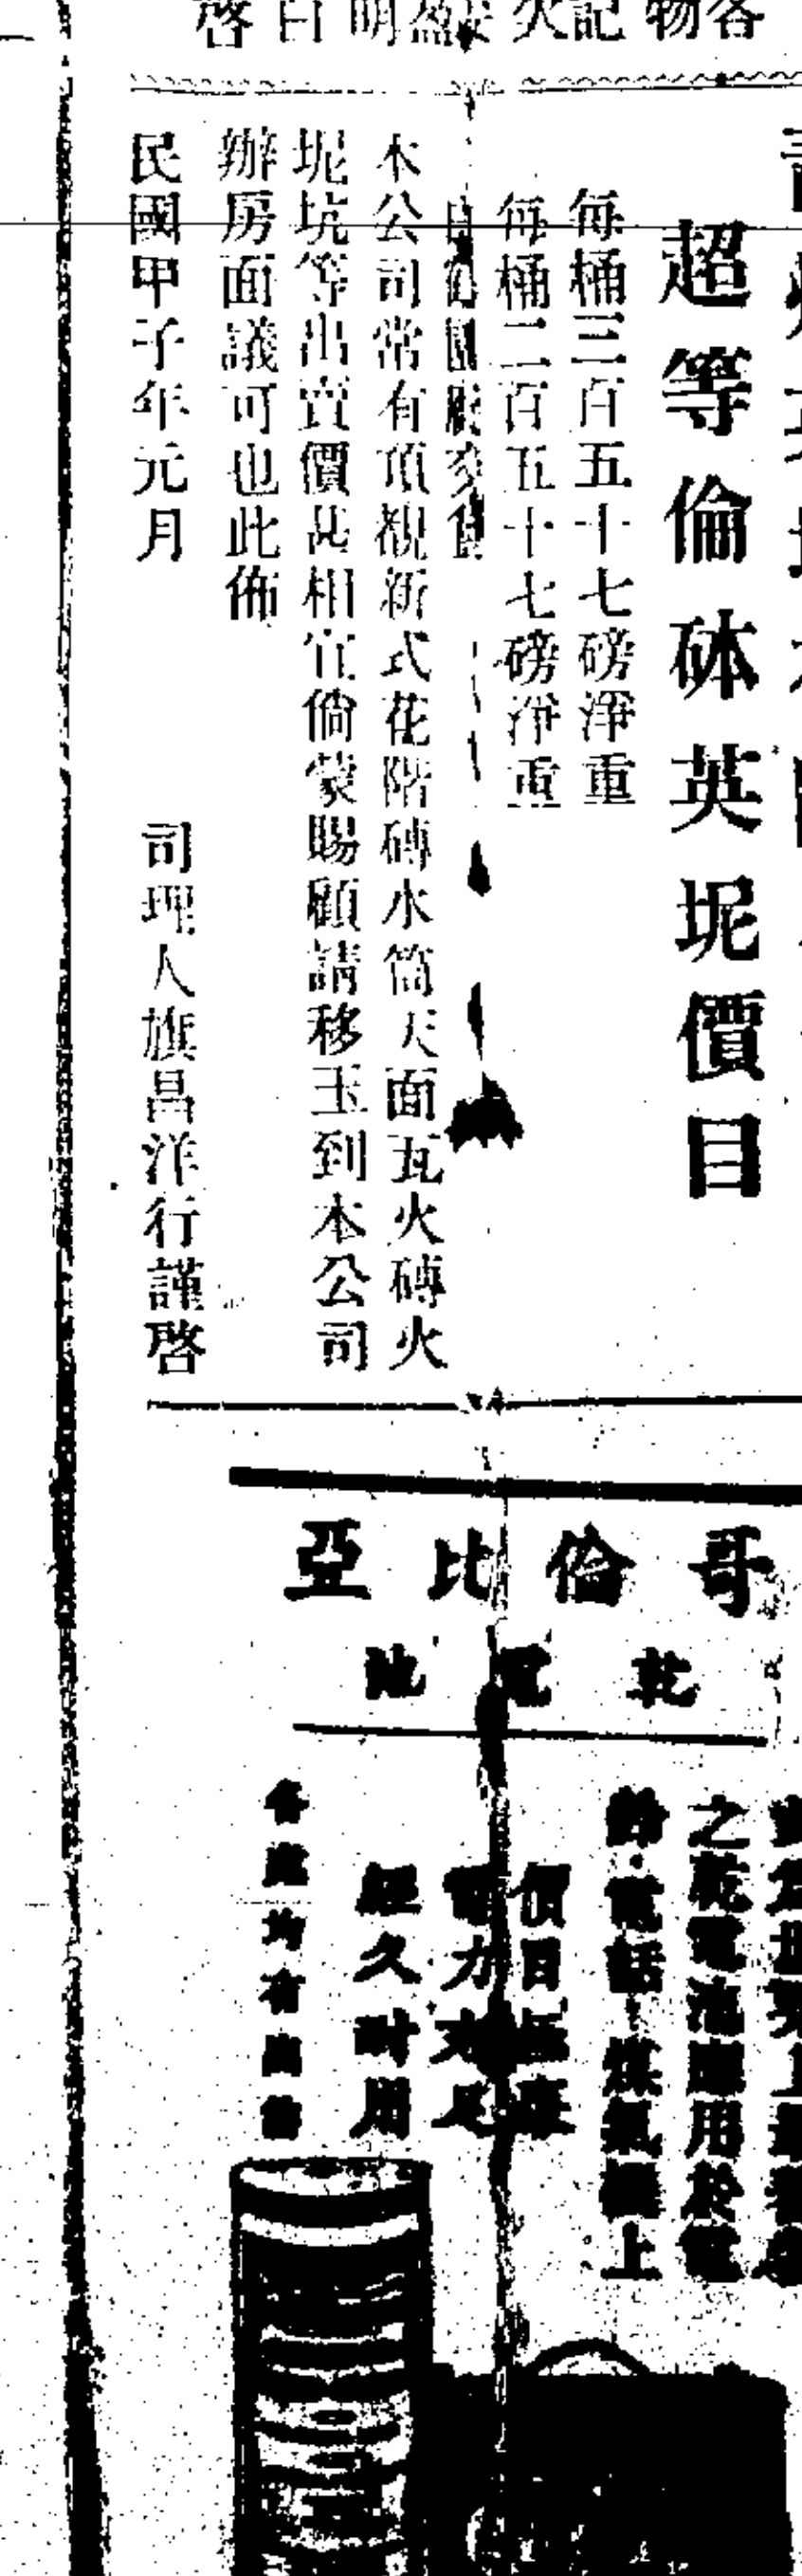 啓白明盈安火記物各
超等倫砵英坭價目
每桶三百五十七磅淨重
每桶二百五十七磅淨重
本公司常有頂靚新式花階磚水筒天面瓦火磚火
坭坑等出賣價甚相宜倘蒙賜顧請移玉到本公司
辦房面議可也此佈
民國甲子年元月
司理人旗昌洋行謹啓
哥倫比亞
乾電池
之乾電池應用於電
鈴電話煤氣機上
價目極廉
電力充足
經久耐用
各處均有出售